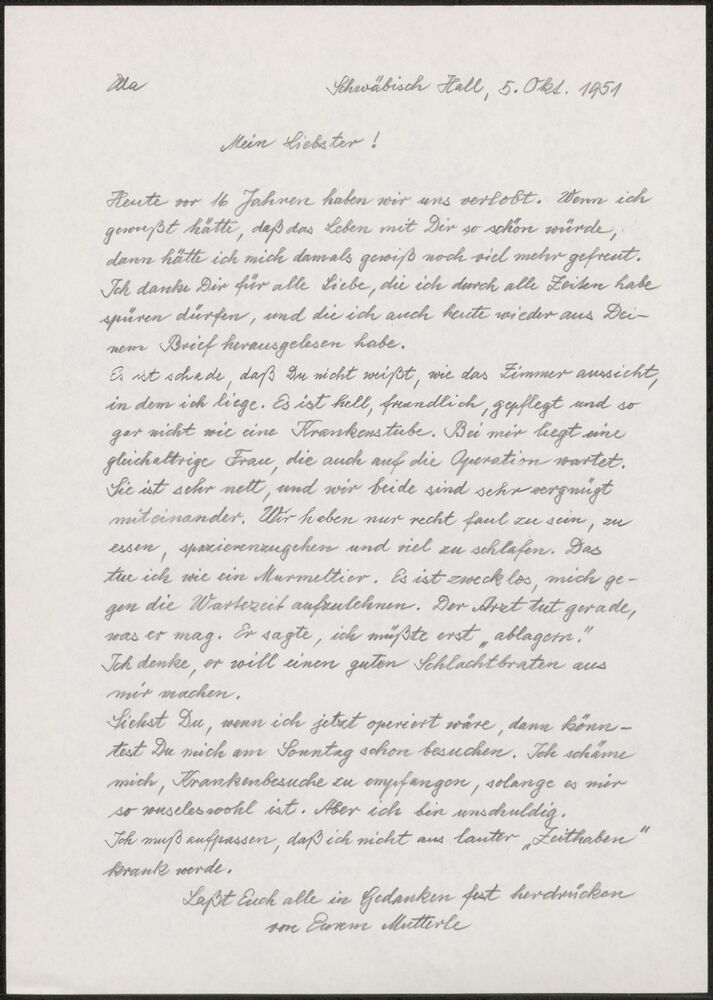 Ida
Schwäbisch Hall, 5. Okt. 1951
Mein Liebster!
Heute vor 16 Jahren haben wir uns verlobt. Wenn ich
gewußt hätte, daß das Leben mit Dir so schön würde,
dann hätte ich mich damals gewiß noch viel mehr gefreut.
Ich danke Dir für alle Liebe, die ich durch alle Zeiten habe
spüren dürfen, und die ich auch heute wieder aus Dei-
nem Brief herausgelesen habe.
Es ist schade, daß Du nicht weißt, wie das Zimmer aussieht,
in dem ich liege. Es ist hell, freundlich, gepflegt und so
gar nicht wie eine Krankenstube. Bei mir liegt eine
gleichaltrige Frau, die auch auf die Operation wartet.
Sie ist sehr nett, und wir beide sind sehr vergnügt
miteinander. Wir haben nur recht faul zu sein, zu
essen, spazierenzugehen und viel zu schlafen. Das
tue ich wie ein Murmeltier. Es ist zwecklos, mich ge-
gen die Wartezeit aufzulehnen. Der Arzt tut gerade,
was er mag. Er sagte, ich müßte erst „ablagern."
Ich denke, er will einen guten Schlachtbraten aus
mir machen.
Siehst Du, wenn ich jetzt operiert wäre, dann könn-
test Du mich am Sonntag schon besuchen. Ich schäme
mich, Krankenbesuche zu empfangen, solange es mir
so museleswohl ist. Aber ich bin unschuldig.
Ich muß aufpassen, daß ich nicht aus lauter „Zeithaben"
krank werde.
Laßt Euch alle in Gedanken fest herdrücken
von Eurem Mutterle